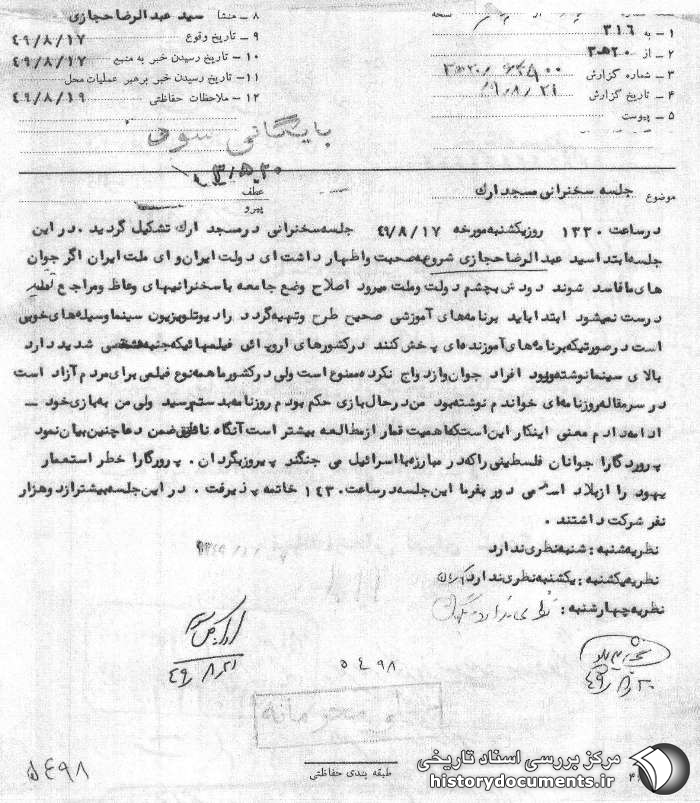 ۸ – منشا سید عبدالرضا حجازی
۹ – تاریخ وقوع ۴۹/۸/۱۷
۱۰ – تاریخ رسیدن خبر به منبع ۴۹/۸/۱۷
۱۱ – تاریخ رسیدن خبر برهبر عملیات محل
۱۲ – ملاحظات حفاظتی ۴۹/۸/۱۹
نسخه
۱ – به ۳۱۶
۲ – از ۲۰ه۳
۳ – شماره گزارش
۴ – تاریخ گزارش
۵ – پیوست
بایگانی شود
عطف
پیرو
موضوع جلسه سخنرانی مسجد ارك
درساعت ۱۳۳۰ روز یکشنبه مورخه ۴۹/۸/۱۷ جلسه سخنرانی در مسجد ارك تشکیل گردید . در این
جلسه ابتدا سید عبدالرضا حجازی شروع به صحبت و اظهار داشت ای دولت ایران و ای ملت ایران اگر جوان
های ما فاسد شوند دودش بچشم دولت و ملت میرود اصلاح وضع جامعه با سخنرانیهای وعاظ و مراجع تقلید
درست نمیشود ابتدا باید برنامه های آموزشی صحیح طرح و تهیه گردد رادیو تلویزیون سینما وسیله های خوبی
است در صورتیکه برنامه های آموزنده ای پخش کنند در کشورهای اروپائی فیلمهائیکه جنبه شدید دارد
بالای سینما نوشته ورود افراد جوان و ازدواج نکرده ممنوع است ولی در کشور ما همه نوع فیلمی برای مردم آزاد است
در سرمقاله روزنامه ای خواندم نوشته بود من در حال بازی حکم بودم روزنامه بدستم رسید ولی من به بازی خود –
ادامه دادم معنی اینکار این است که اهمیت قمار از مطالعه بیشتر است آنگاه ناطق ضمن دعا چنین بیان نمود
پروردگارا جوانان فلسطینی را که در مبارزه با اسرائیل می جنگند پیروز بگردان . پرورگارا خطر استعمار
یهود را از بلاد اسلامی دور بفرما این جلسه در ساعت ۱۴۳۰ خاتمه پذیرفت . در این جلسه بیشتر از دو هزار
نفر شرکت داشتند .
نظریه شنبه : شنبه نظری ندارد
نظریه یکشنبه : یکشنبه نظری ندارد
نظریه چهارشنبه : نظری ندارد
۴۹/۸/۲۱
۴۹/۸/۲۰
۵۴۹۸
محرمانه
طبقه بندی حفاظتی
۵۴۹۸
مرکز بررسی اسناد تاریخی
historydocuments.ir